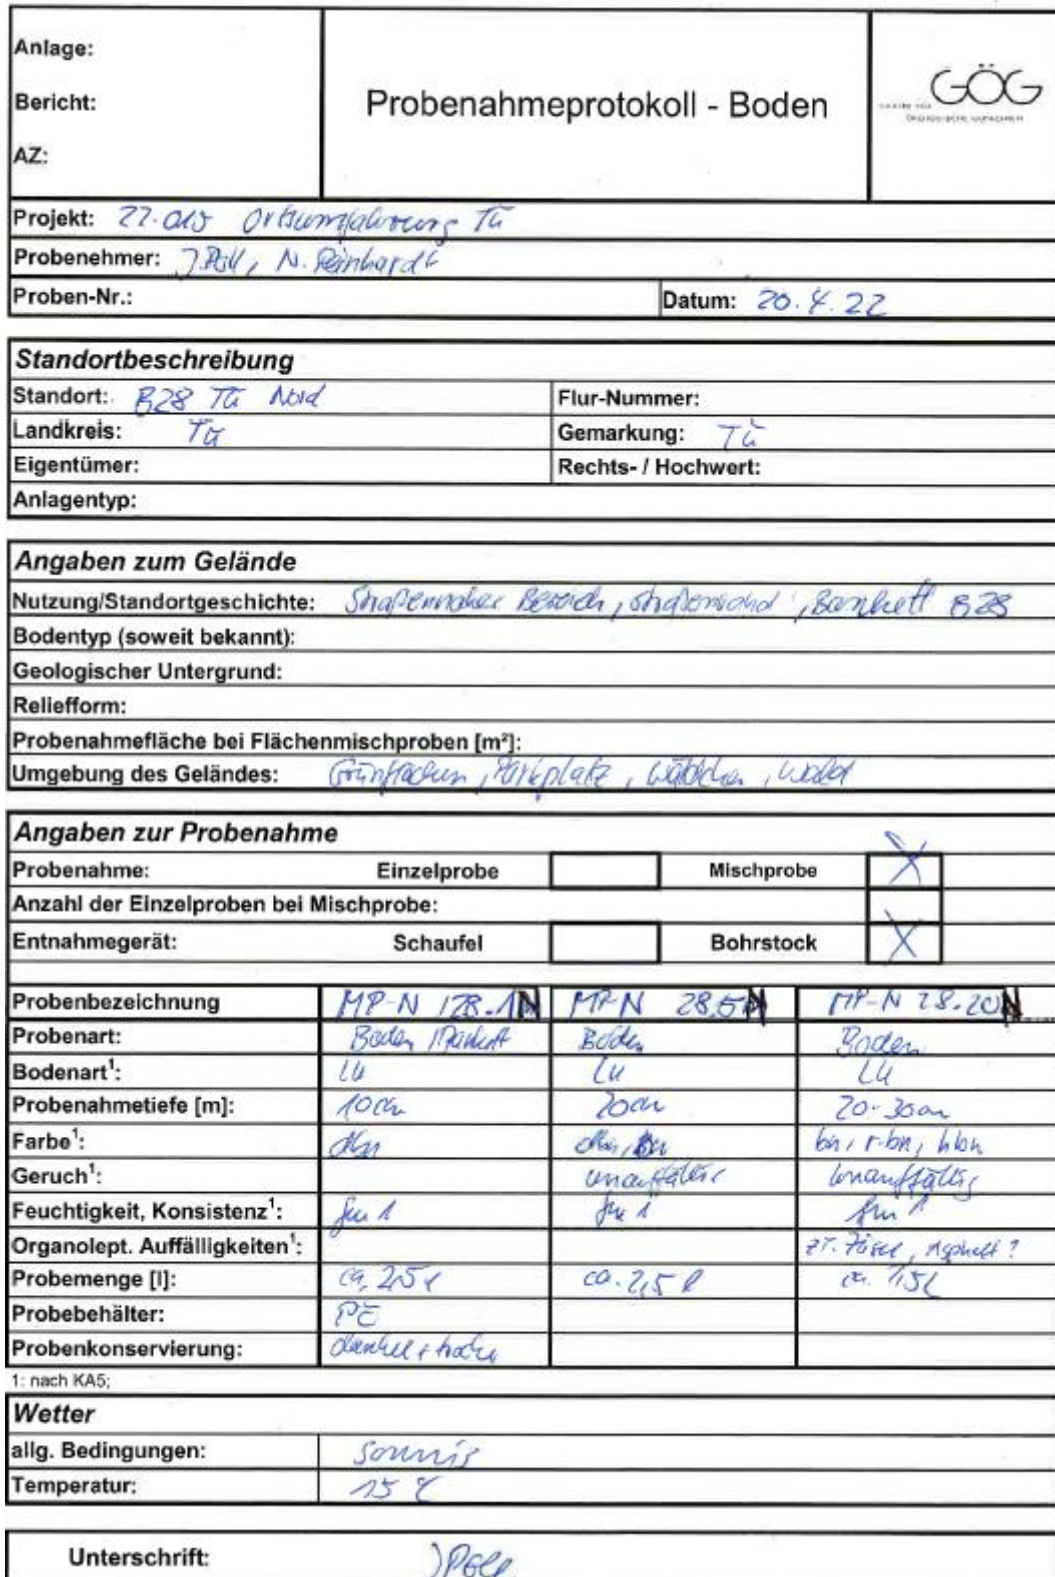 Anlage:
Bericht:
AZ:
Probenahmeprotokoll - Boden
GÖG
Projekt: Ortsumfahrung Tü
Probenehmer: J. Poll, N. Reinhardt
Proben-Nr.:
Datum: 20.4.22
Standortbeschreibung
Standort: B28 Tü Nord
Flur-Nummer:
Landkreis: Tü
Gemarkung: Tü
Eigentümer:
Rechts- / Hochwert:
Anlagentyp:
Angaben zum Gelände
Nutzung/Standortgeschichte: Straßennaher Bereich, Straßenrand, Bankett B28
Bodentyp (soweit bekannt):
Geologischer Untergrund:
Reliefform:
Probenahmefläche bei Flächenmischproben [m²]:
Umgebung des Geländes: Grünflächen, Parkplatz, Wäldchen, Wald
Angaben zur Probenahme
Probenahme: Einzelprobe Mischprobe X
Anzahl der Einzelproben bei Mischprobe:
Entnahmegerät: Schaufel Bohrstock X
Probenbezeichnung MP-N MP-N MP-N
Probenart: Boden Boden Boden
Bodenart¹: Lu Lu Lu
Probenahmetiefe [m]: 10cm 20cm 20-30cm
Farbe¹: dbn bn, r-bn, hbn
Geruch¹: unauffällig unauffällig
Feuchtigkeit, Konsistenz¹:
Organolept. Auffälligkeiten¹: Asphalt?
Probemenge [l]: ca. 2,5 l ca. 2,5 l ca.
Probebehälter: PE
Probenkonservierung: dunkel +
1: nach KA5;
Wetter
allg. Bedingungen: sonnig
Temperatur: 15 °C
Unterschrift: JPoll